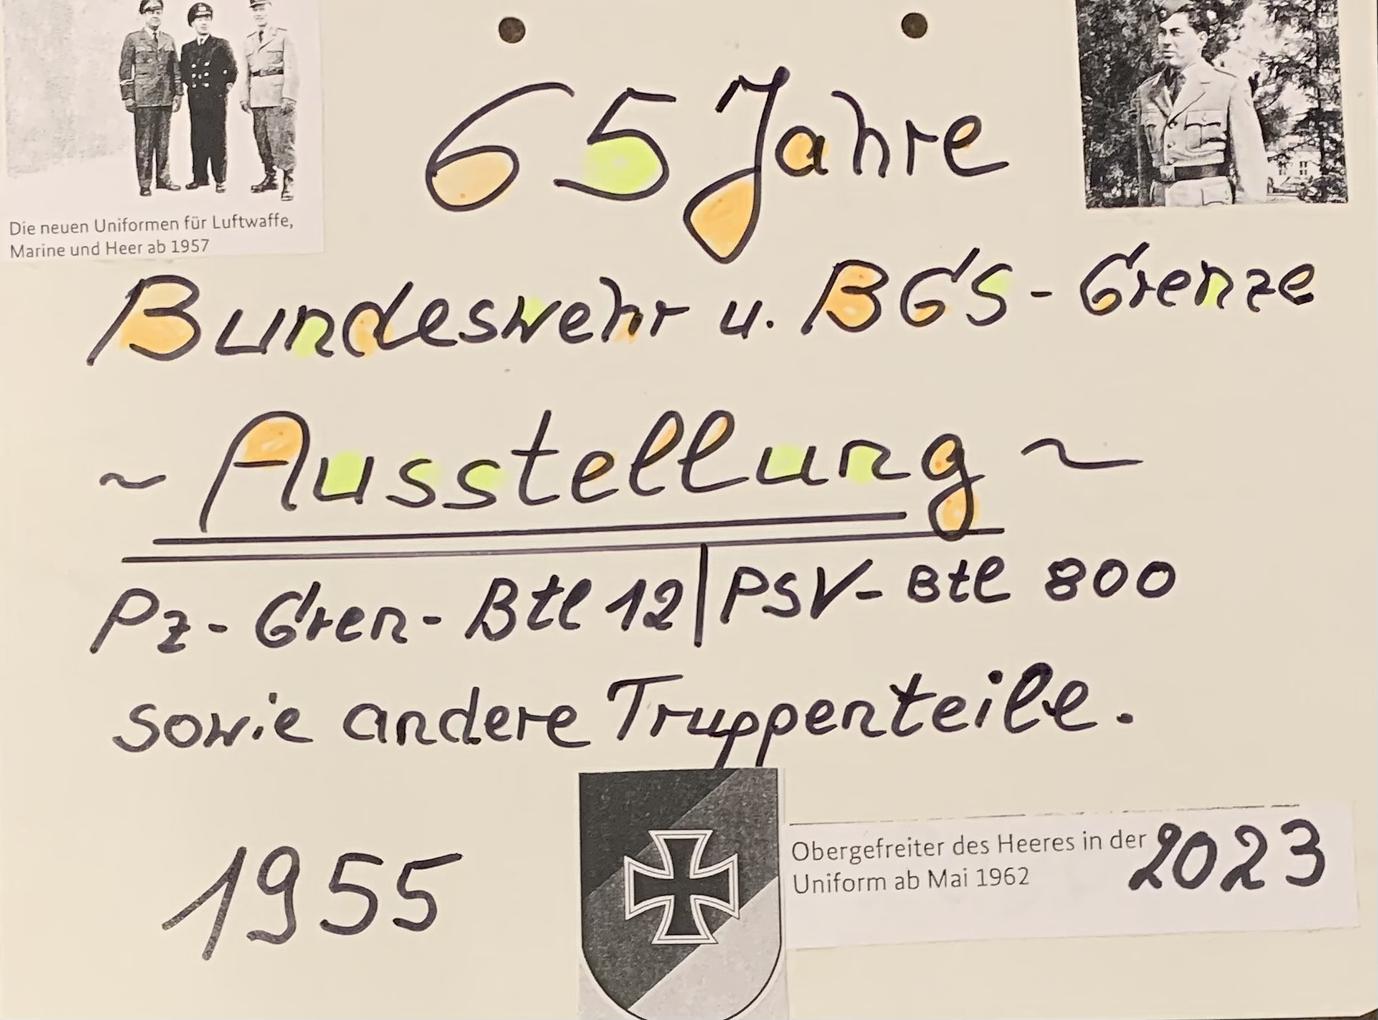 65 Jahre
Die neuen Uniformen für Luftwaffe,
Marine und Heer ab 1957
Bundeswehr u. BGS - Grenze
~ Ausstellung ~
Pz-Gren-Btl 12 | PSV-Btl 800
sowie andere Truppenteile.
1955
Obergefreiter des Heeres in der
Uniform ab Mai 1962
2023